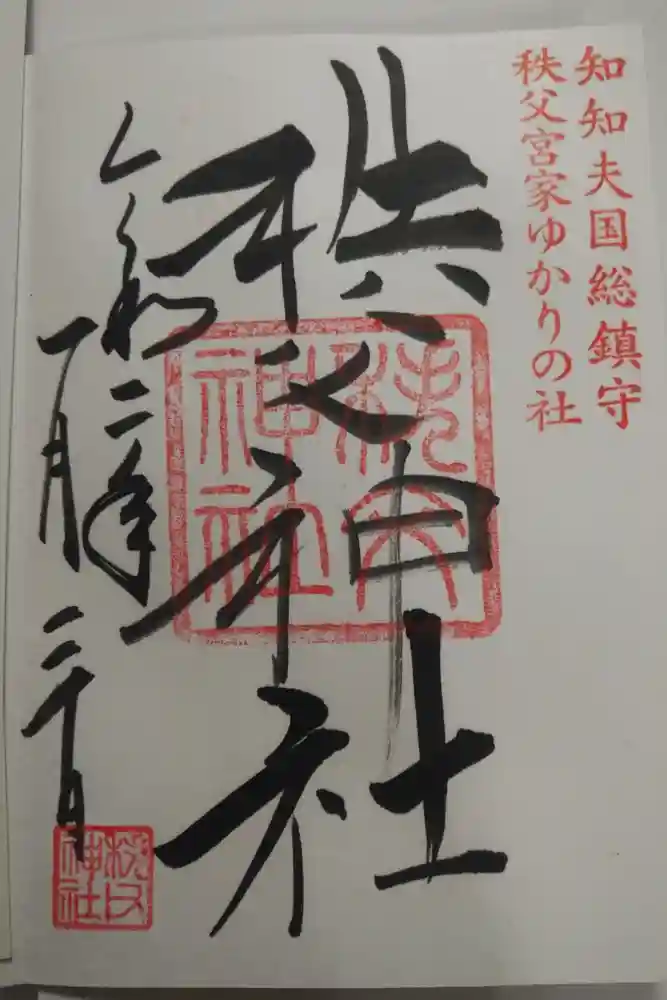 知知夫国総鎮守
秩父宮家ゆかりの社
秩父神社
令和二年
一月二十日
秩父
神社
秩父
神社